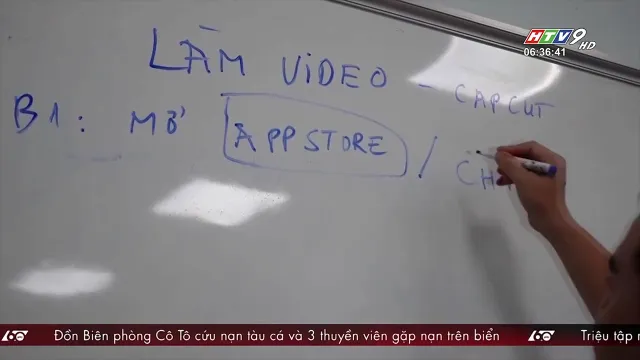 HTV9 HD
06:36:41
LÀM VIDEO - CAPCUT
B1: MỞ APPSTORE / CH
60 Đồn Biên phòng Cô Tô cứu nạn tàu cá và 3 thuyền viên gặp nạn trên biển 60 Triệu tập n